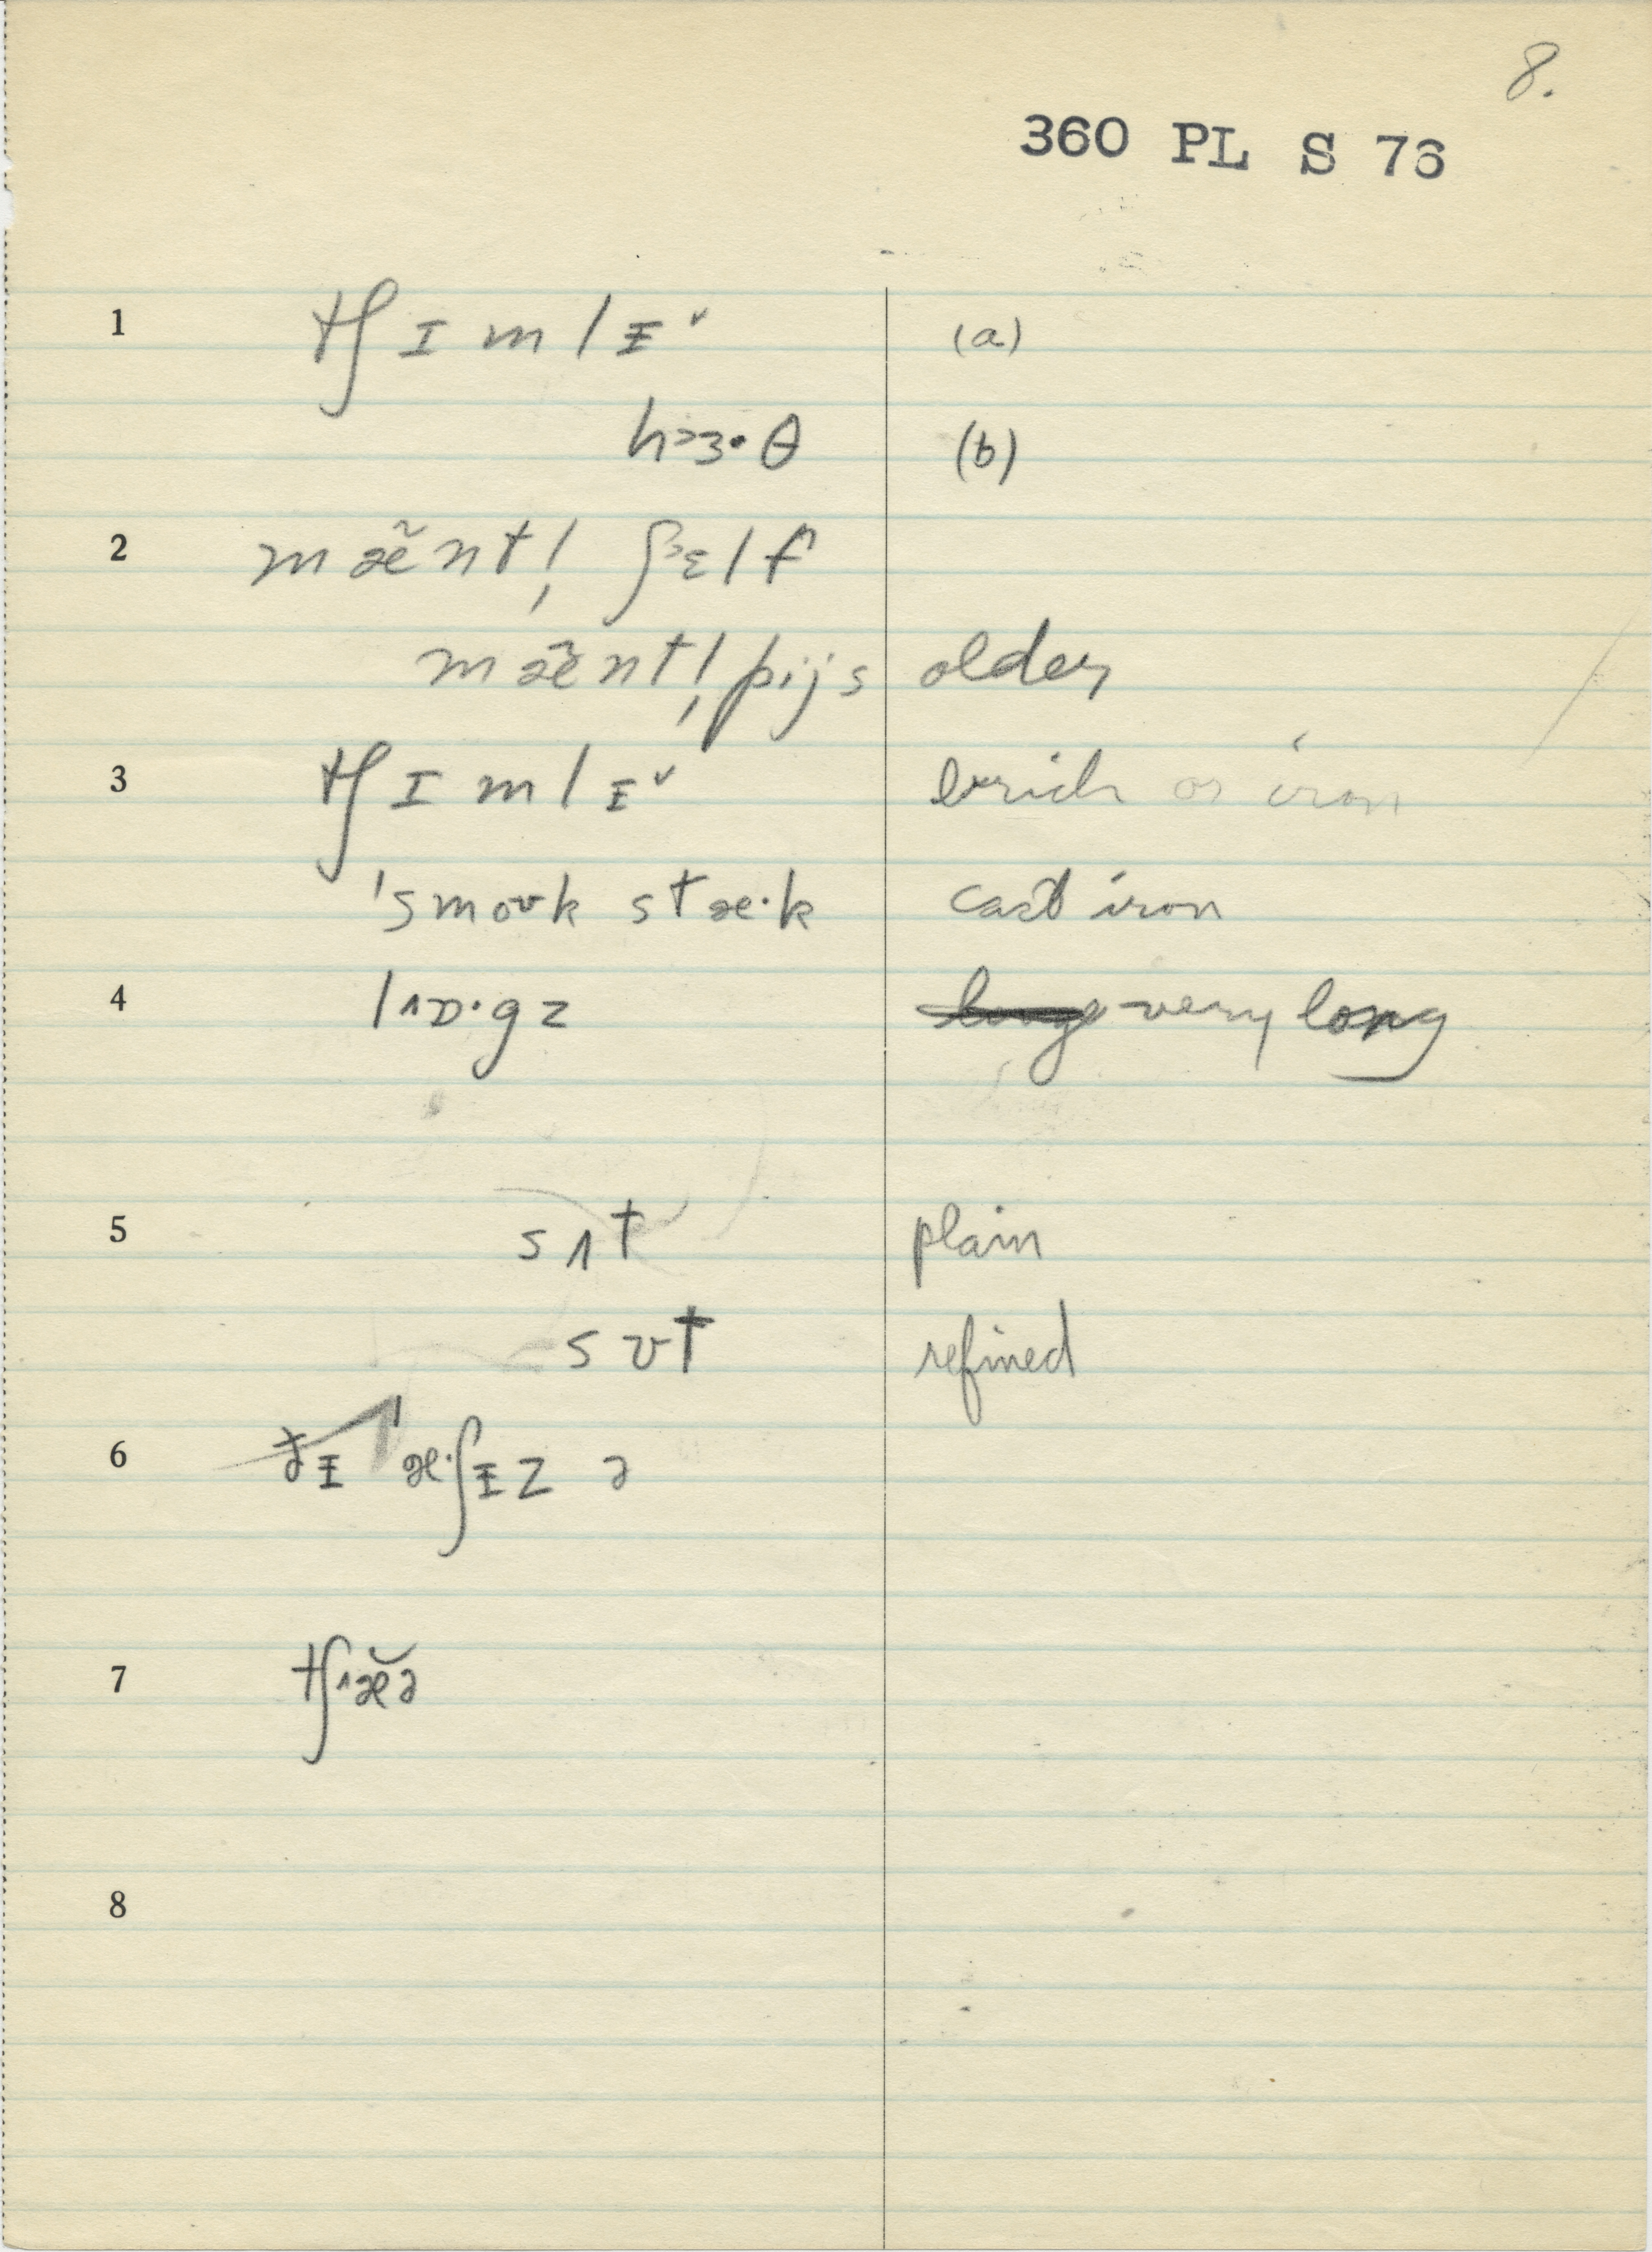 8.
360 PL S 76
1 tʃ ɪ m l ɪ ˅ (a)
h ɜ· θ (b)
2 m æ̃ n t l̩ ʃ ɛ l f
m æ̃ n t l̩ p i j s older
3 tʃ ɪ m l ɪ ˅ brick or iron
ˈs m oʊ k s t æ· k cast iron
4 l ɒ· g z very long
5 s ʌ t plain
s ʊ t refined
6 ðɪ æ·ʃɪz ə
7 tʃæ̆ə
8